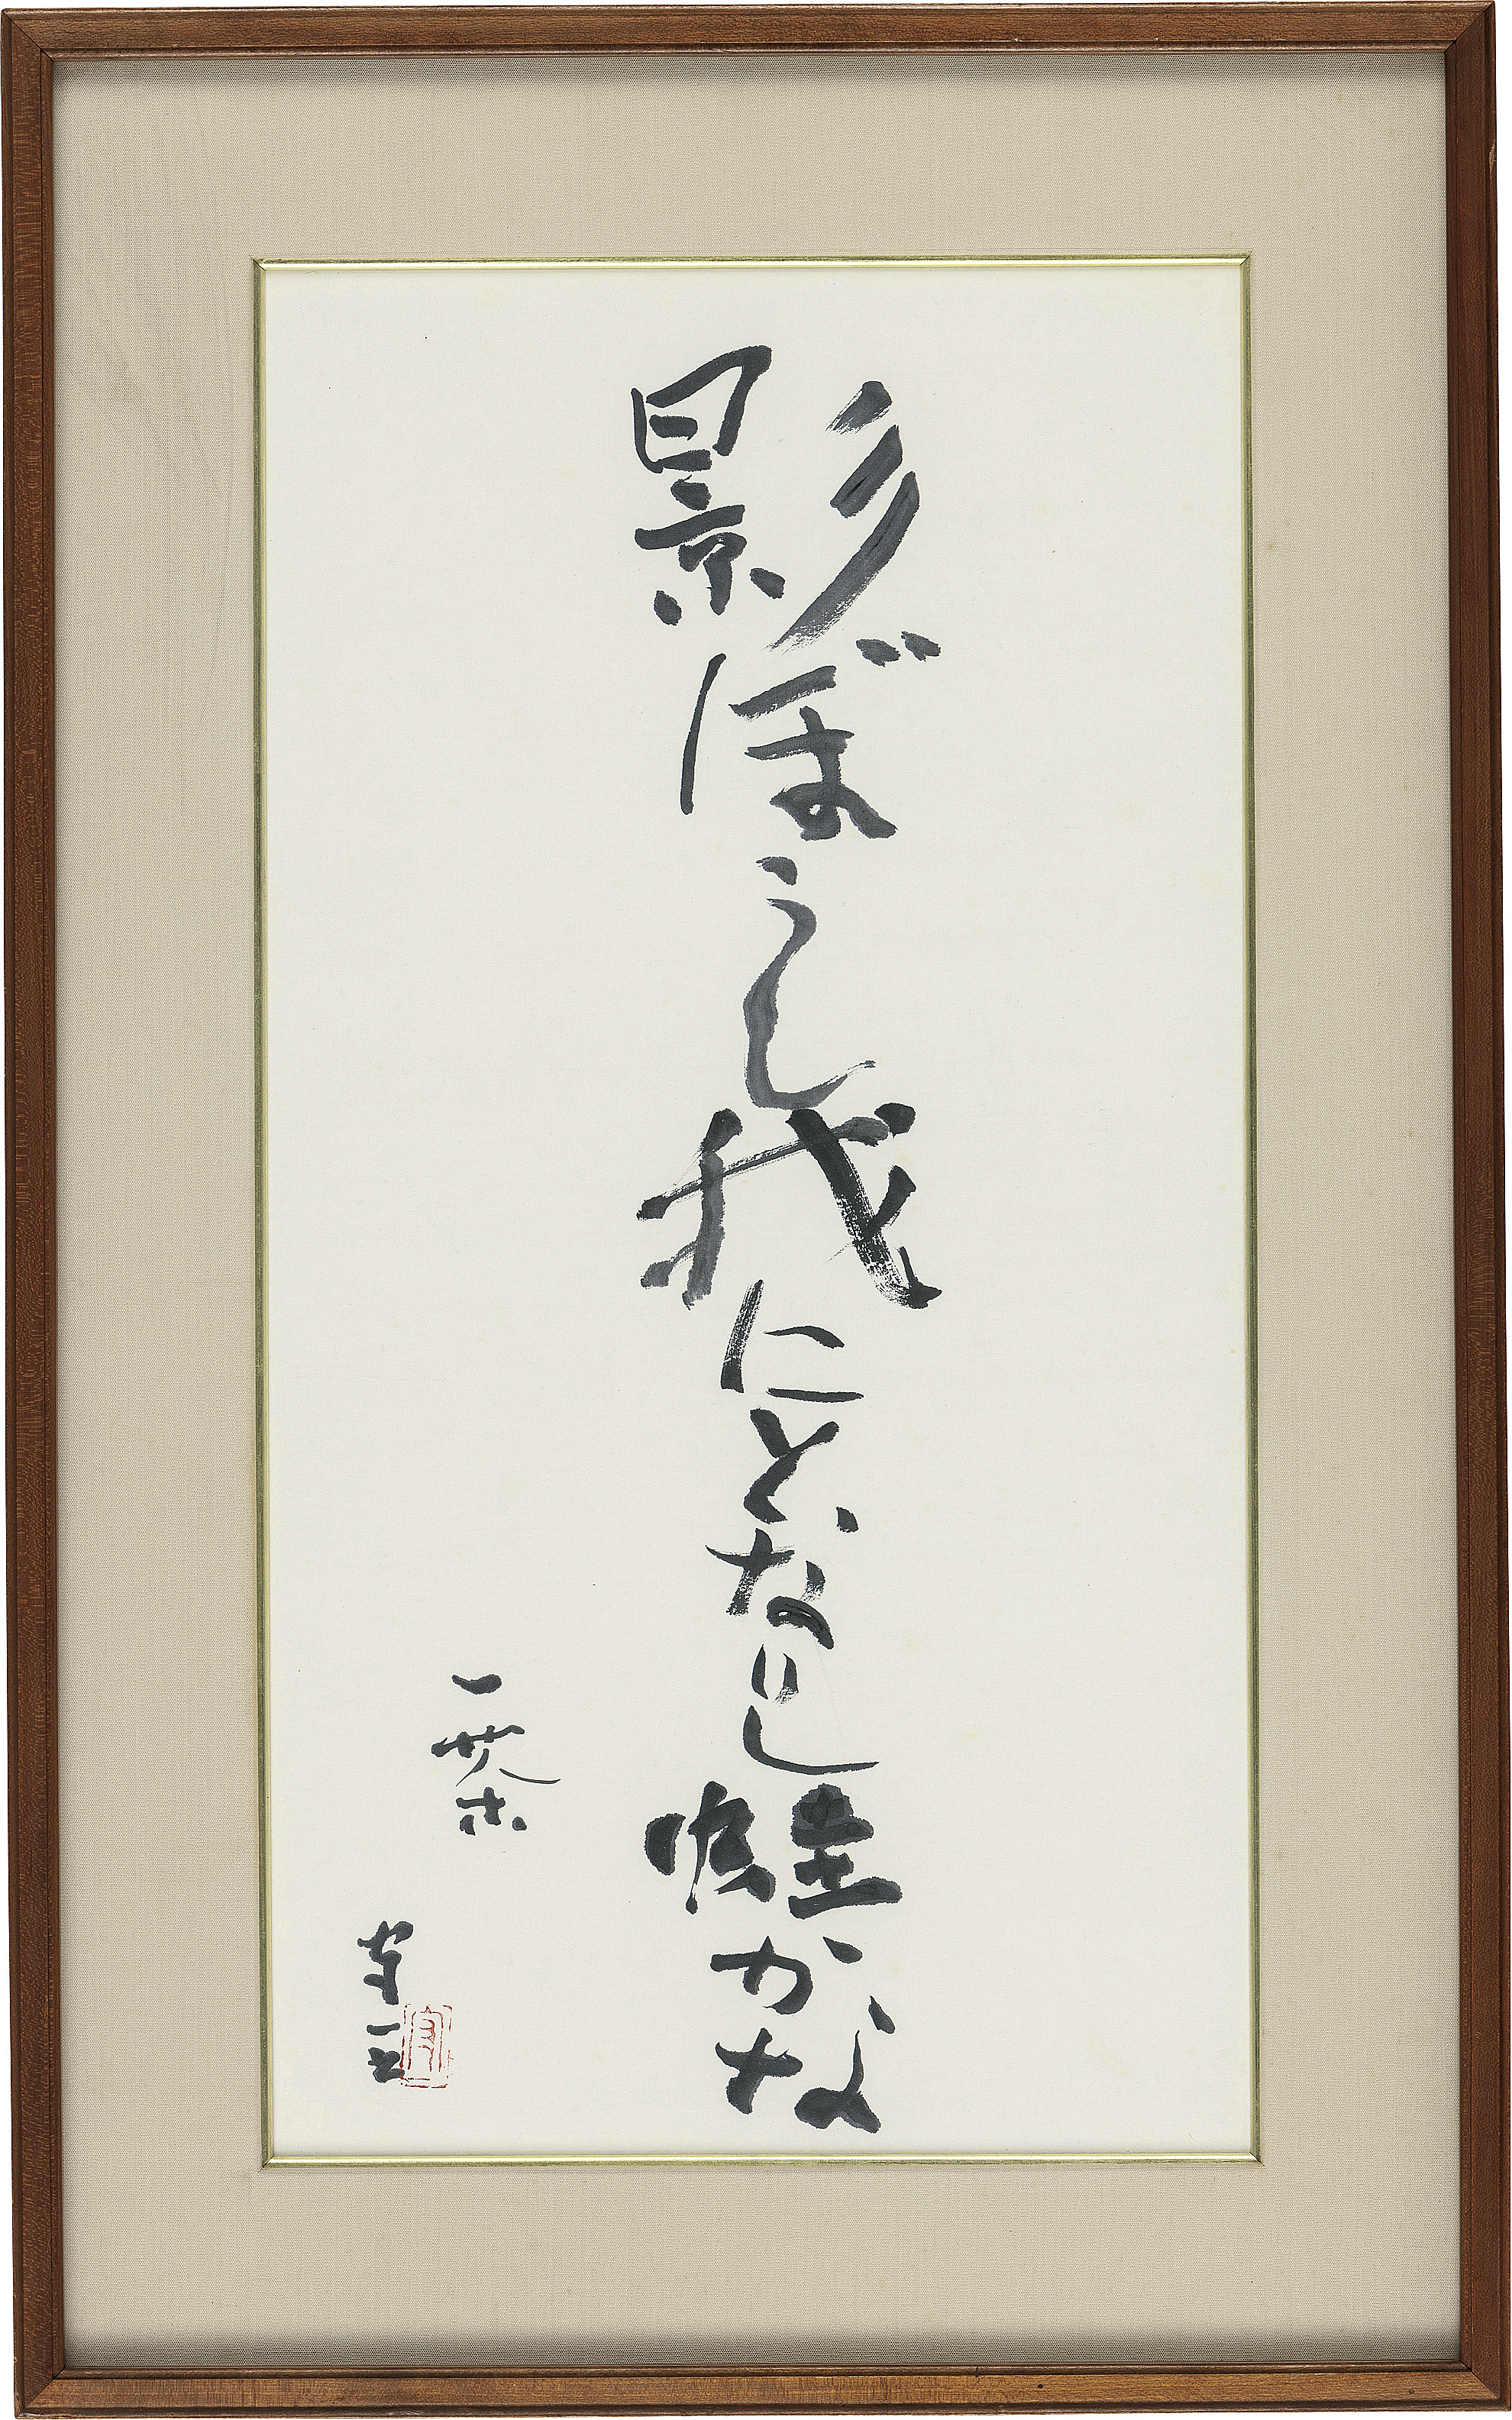 影ぼうし我にとなりし蛙かな
一茶
守一